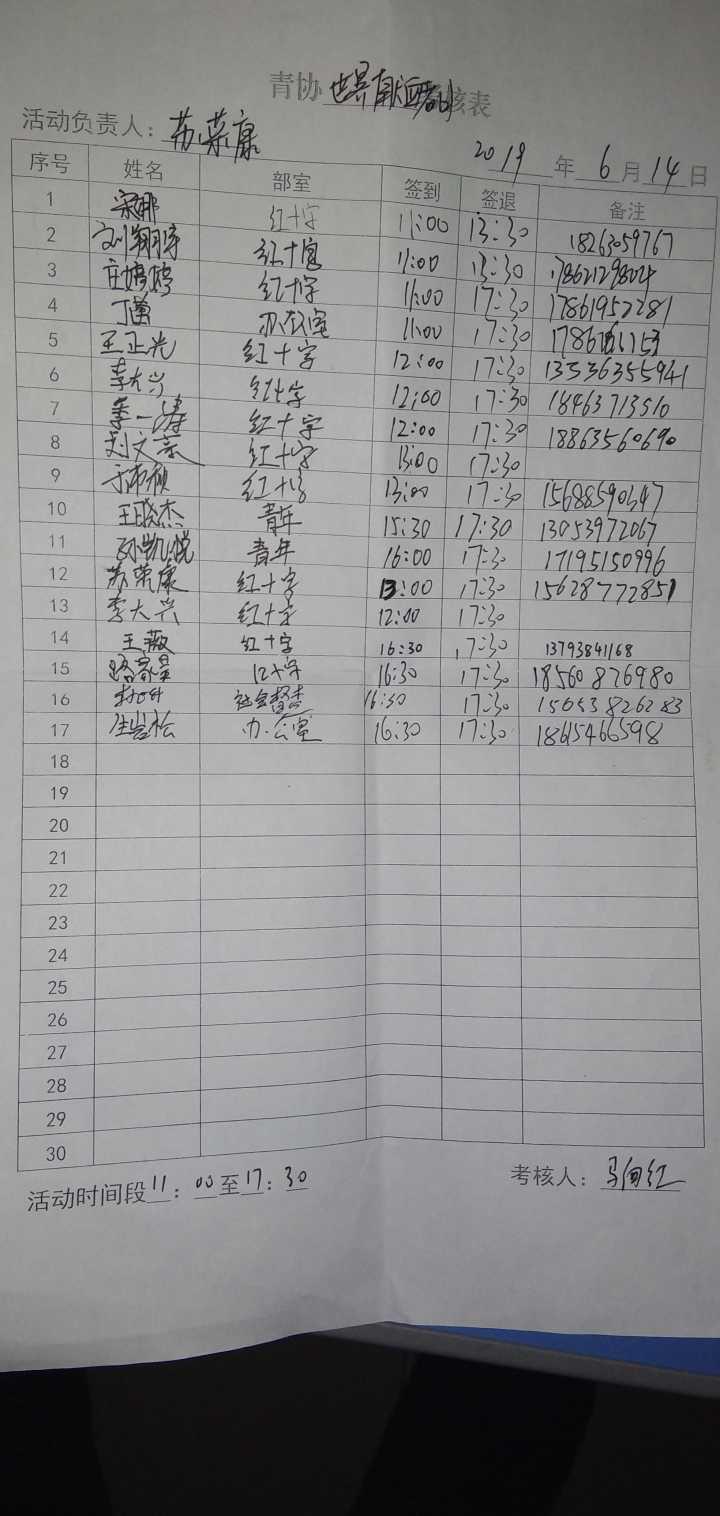 青协世界献血者日考核表
活动负责人：苏荣康
2019年6月14日
序号 姓名 部室 签到 签退 备注
1 宋娜 红十字 11:00 13:30 18263059767
2 刘翔宇 红十字 11:00 13:30 17862129804
3 庄婷婷 红十字 11:00 17:30 17861952281
4 丁蕾 办公室 11:00 17:30
5 王正光 红十字 12:00 17:30 13336355941
6 李大兴 红十字 12:00 17:30 18463713510
7 季一涛 红十字 12:00 17:30 18863560690
8 刘文豪 红十字 13:00 17:30
9 红十字 13:00 17:30 15688590347
10 王晓杰 青年 15:30 17:30 13053972067
11 孙凯悦 青年 16:00 17:30 17195150996
12 苏荣康 红十字 13:00 17:30 15628772851
13 李大兴 红十字 12:00 17:30
14 王薇 红十字 16:30 17:30 13793841168
15 红十字 16:30 17:30 18560876980
16 16:30 17:30 15653826283
17 办公室 16:30 17:30 18615466598
18
19
20
21
22
23
24
25
26
27
28
29
30
活动时间段11：00至17：30 考核人：马向红